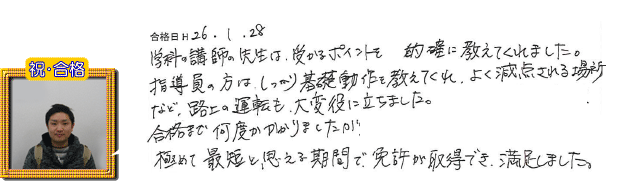 祝・合格
合格日H26.1.28
学科の講師の先生は、受かるポイントを 的確に教えてくれました。
指導員の方は、しっかり基礎動作を教えてくれ、よく減点される場所
など、路上の運転も、大変役に立ちました。
合格まで何度かかかりましたが、
極めて最短と思える期間で、免許が取得でき、満足しました。